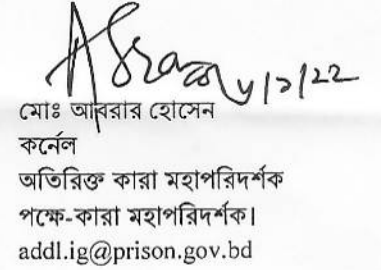 মোঃ আবরার হোসেন
কর্নেল
অতিরিক্ত কারা মহাপরিদর্শক
পক্ষে-কারা মহাপরিদর্শক।
addl.ig@prison.gov.bd